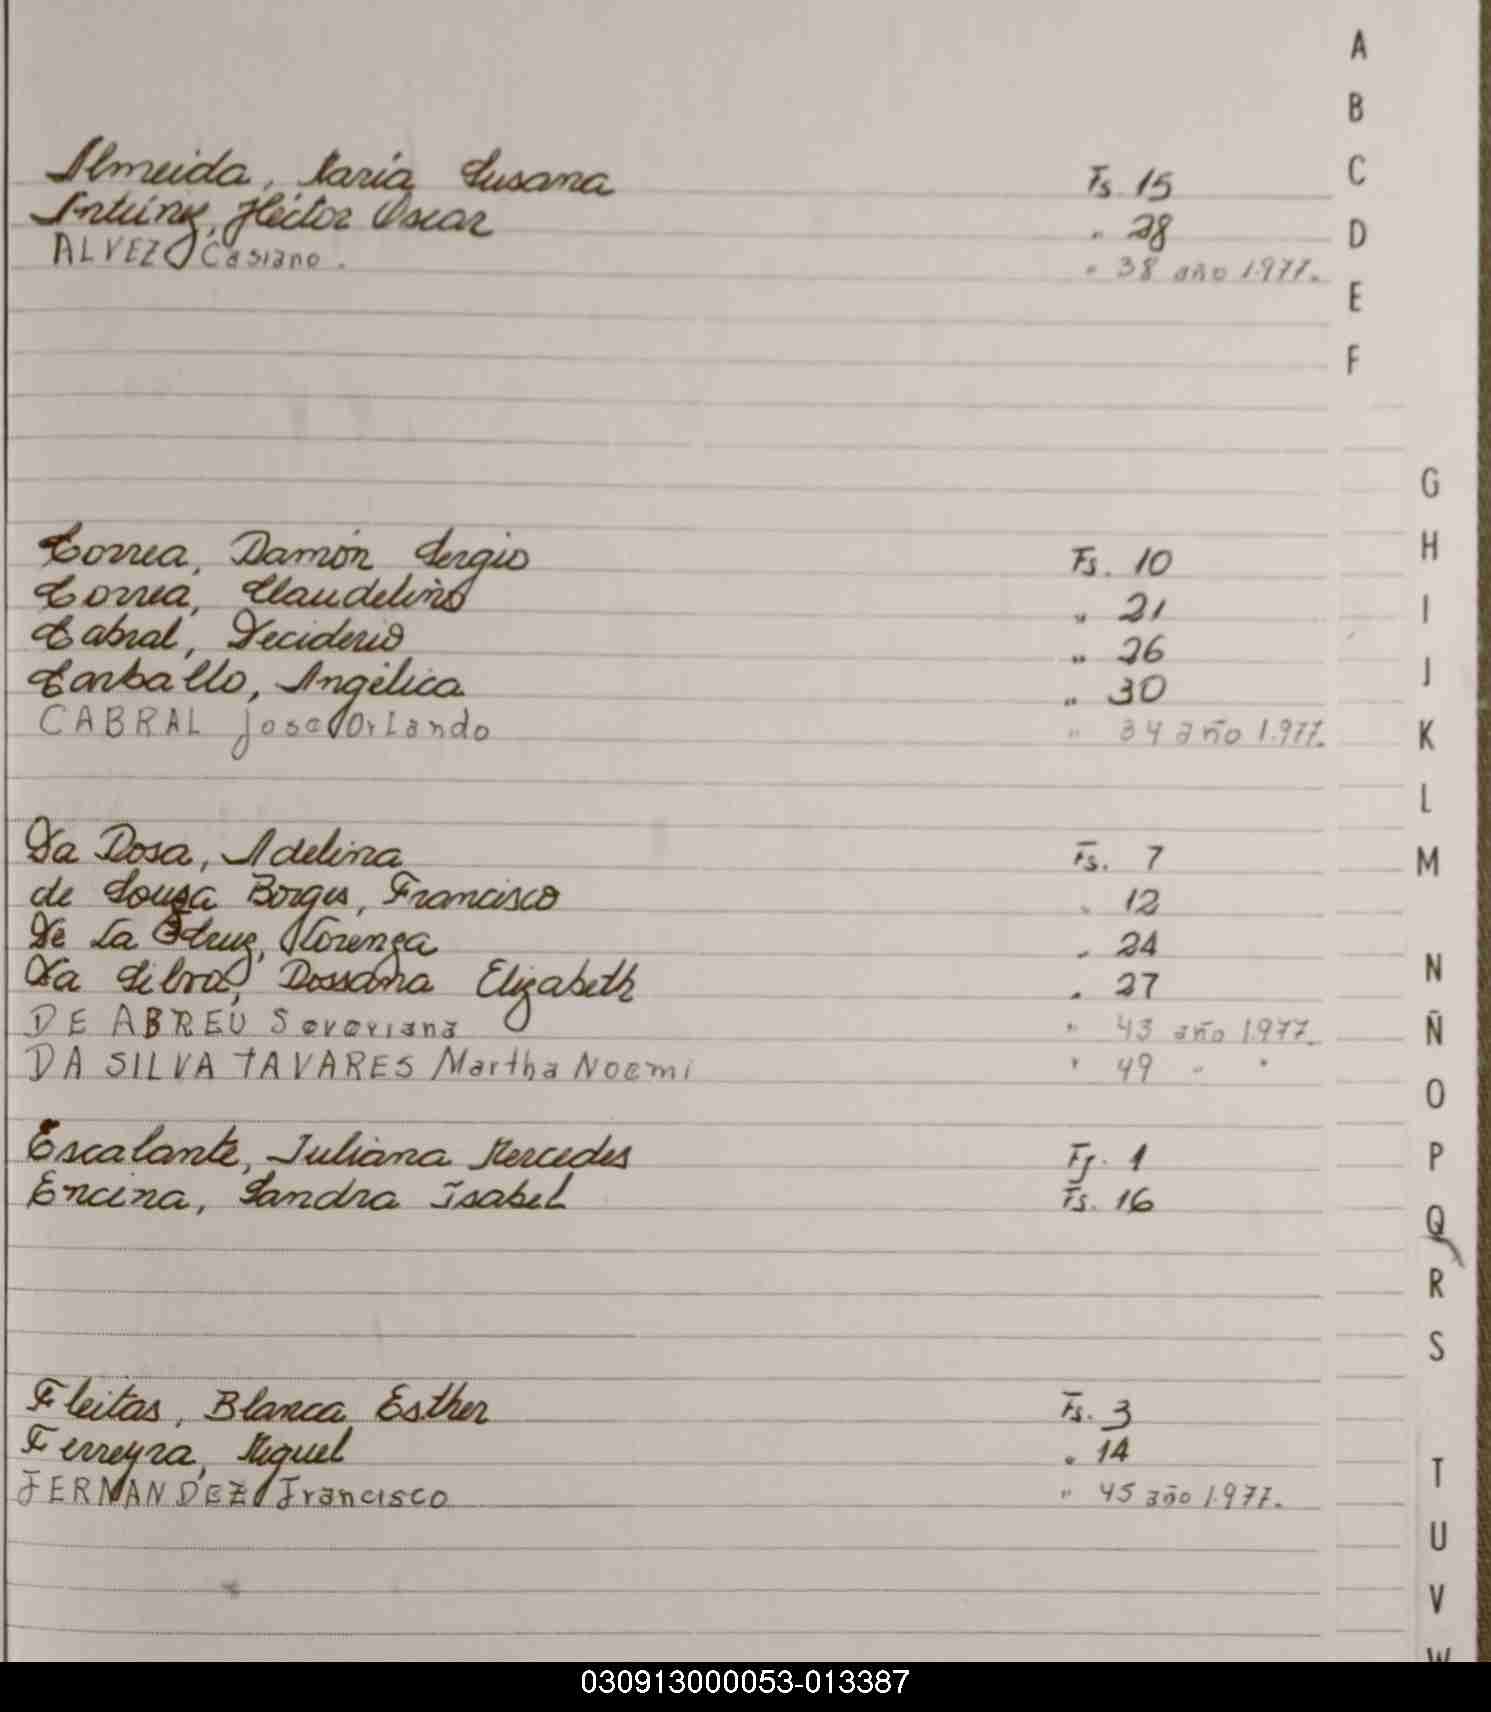 A
B
C
D
E
F
Almeida, Maria Susana Fs. 15
Antúnez, Héctor Oscar " 28
ALVEZ Casiano. " 38 año 1.977.
G
H
I
J
K
L
M
Correa, Ramón Sergio Fs. 10
Correa, Claudelino " 21
Cabral, Deciderio " 26
Carballo, Angélica " 30
CABRAL Jose Orlando " 34 año 1.977.
Da Rosa, Adelina Fs. 7
de Souza Borges, Francisco " 12
De La Cruz, Lorenza " 24
Da Silva, Rossana Elizabeth " 27
DE ABREU Severiana " 43 año 1.977.
DA SILVA TAVARES Martha Noemi " 49 " "
N
Ñ
O
P
Q
R
S
Escalante, Juliana Mercedes Fs. 1
Encina, Sandra Isabel Fs. 16
Fleitas, Blanca Esther Fs. 3
Ferreyra, Miguel " 14
FERNANDEZ Francisco " 45 año 1.977.
T
U
V
W
030913000053-013387